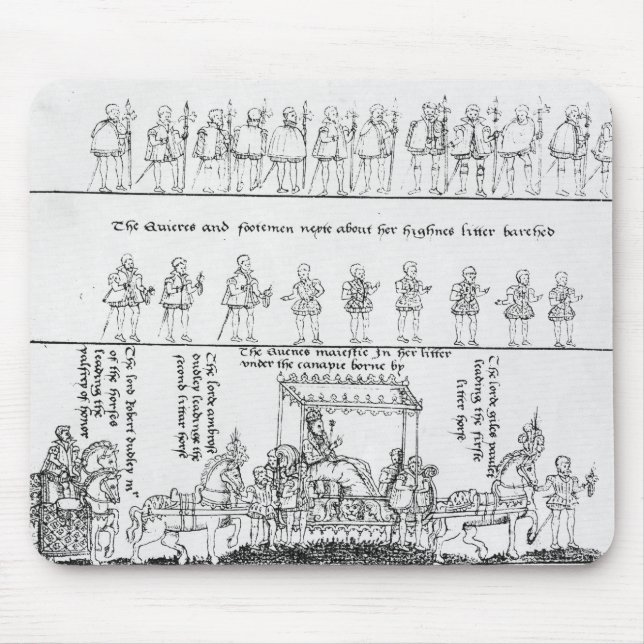 The Quieres and footemen nexte about her highnes litter barehed
The lord Robert dudley mr
of the horses
leading the
palfrey of honor
The lorde ambrose
dudley leadinge the
second littar horse
The Quenes maiestie In her litter
vnder the canapie borne by
The lorde giles paulet
leading the firste
litter horse